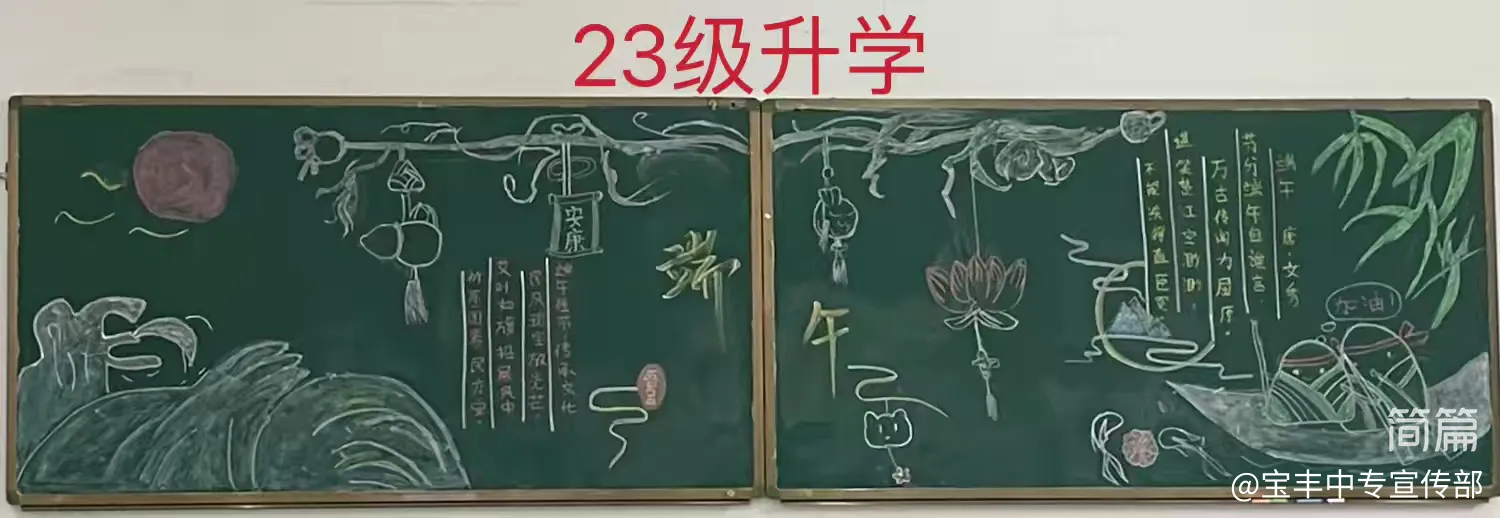 23级升学
安康
端午佳节传承文化
民风瑰宝放光芒
艾叶如旗招展风中
端
午
端午 唐·文秀
节分端午自谁言，
万古传闻为屈原。
堪笑楚江空渺渺，
不能洗得直臣冤
加油！
简篇
@宝丰中专宣传部